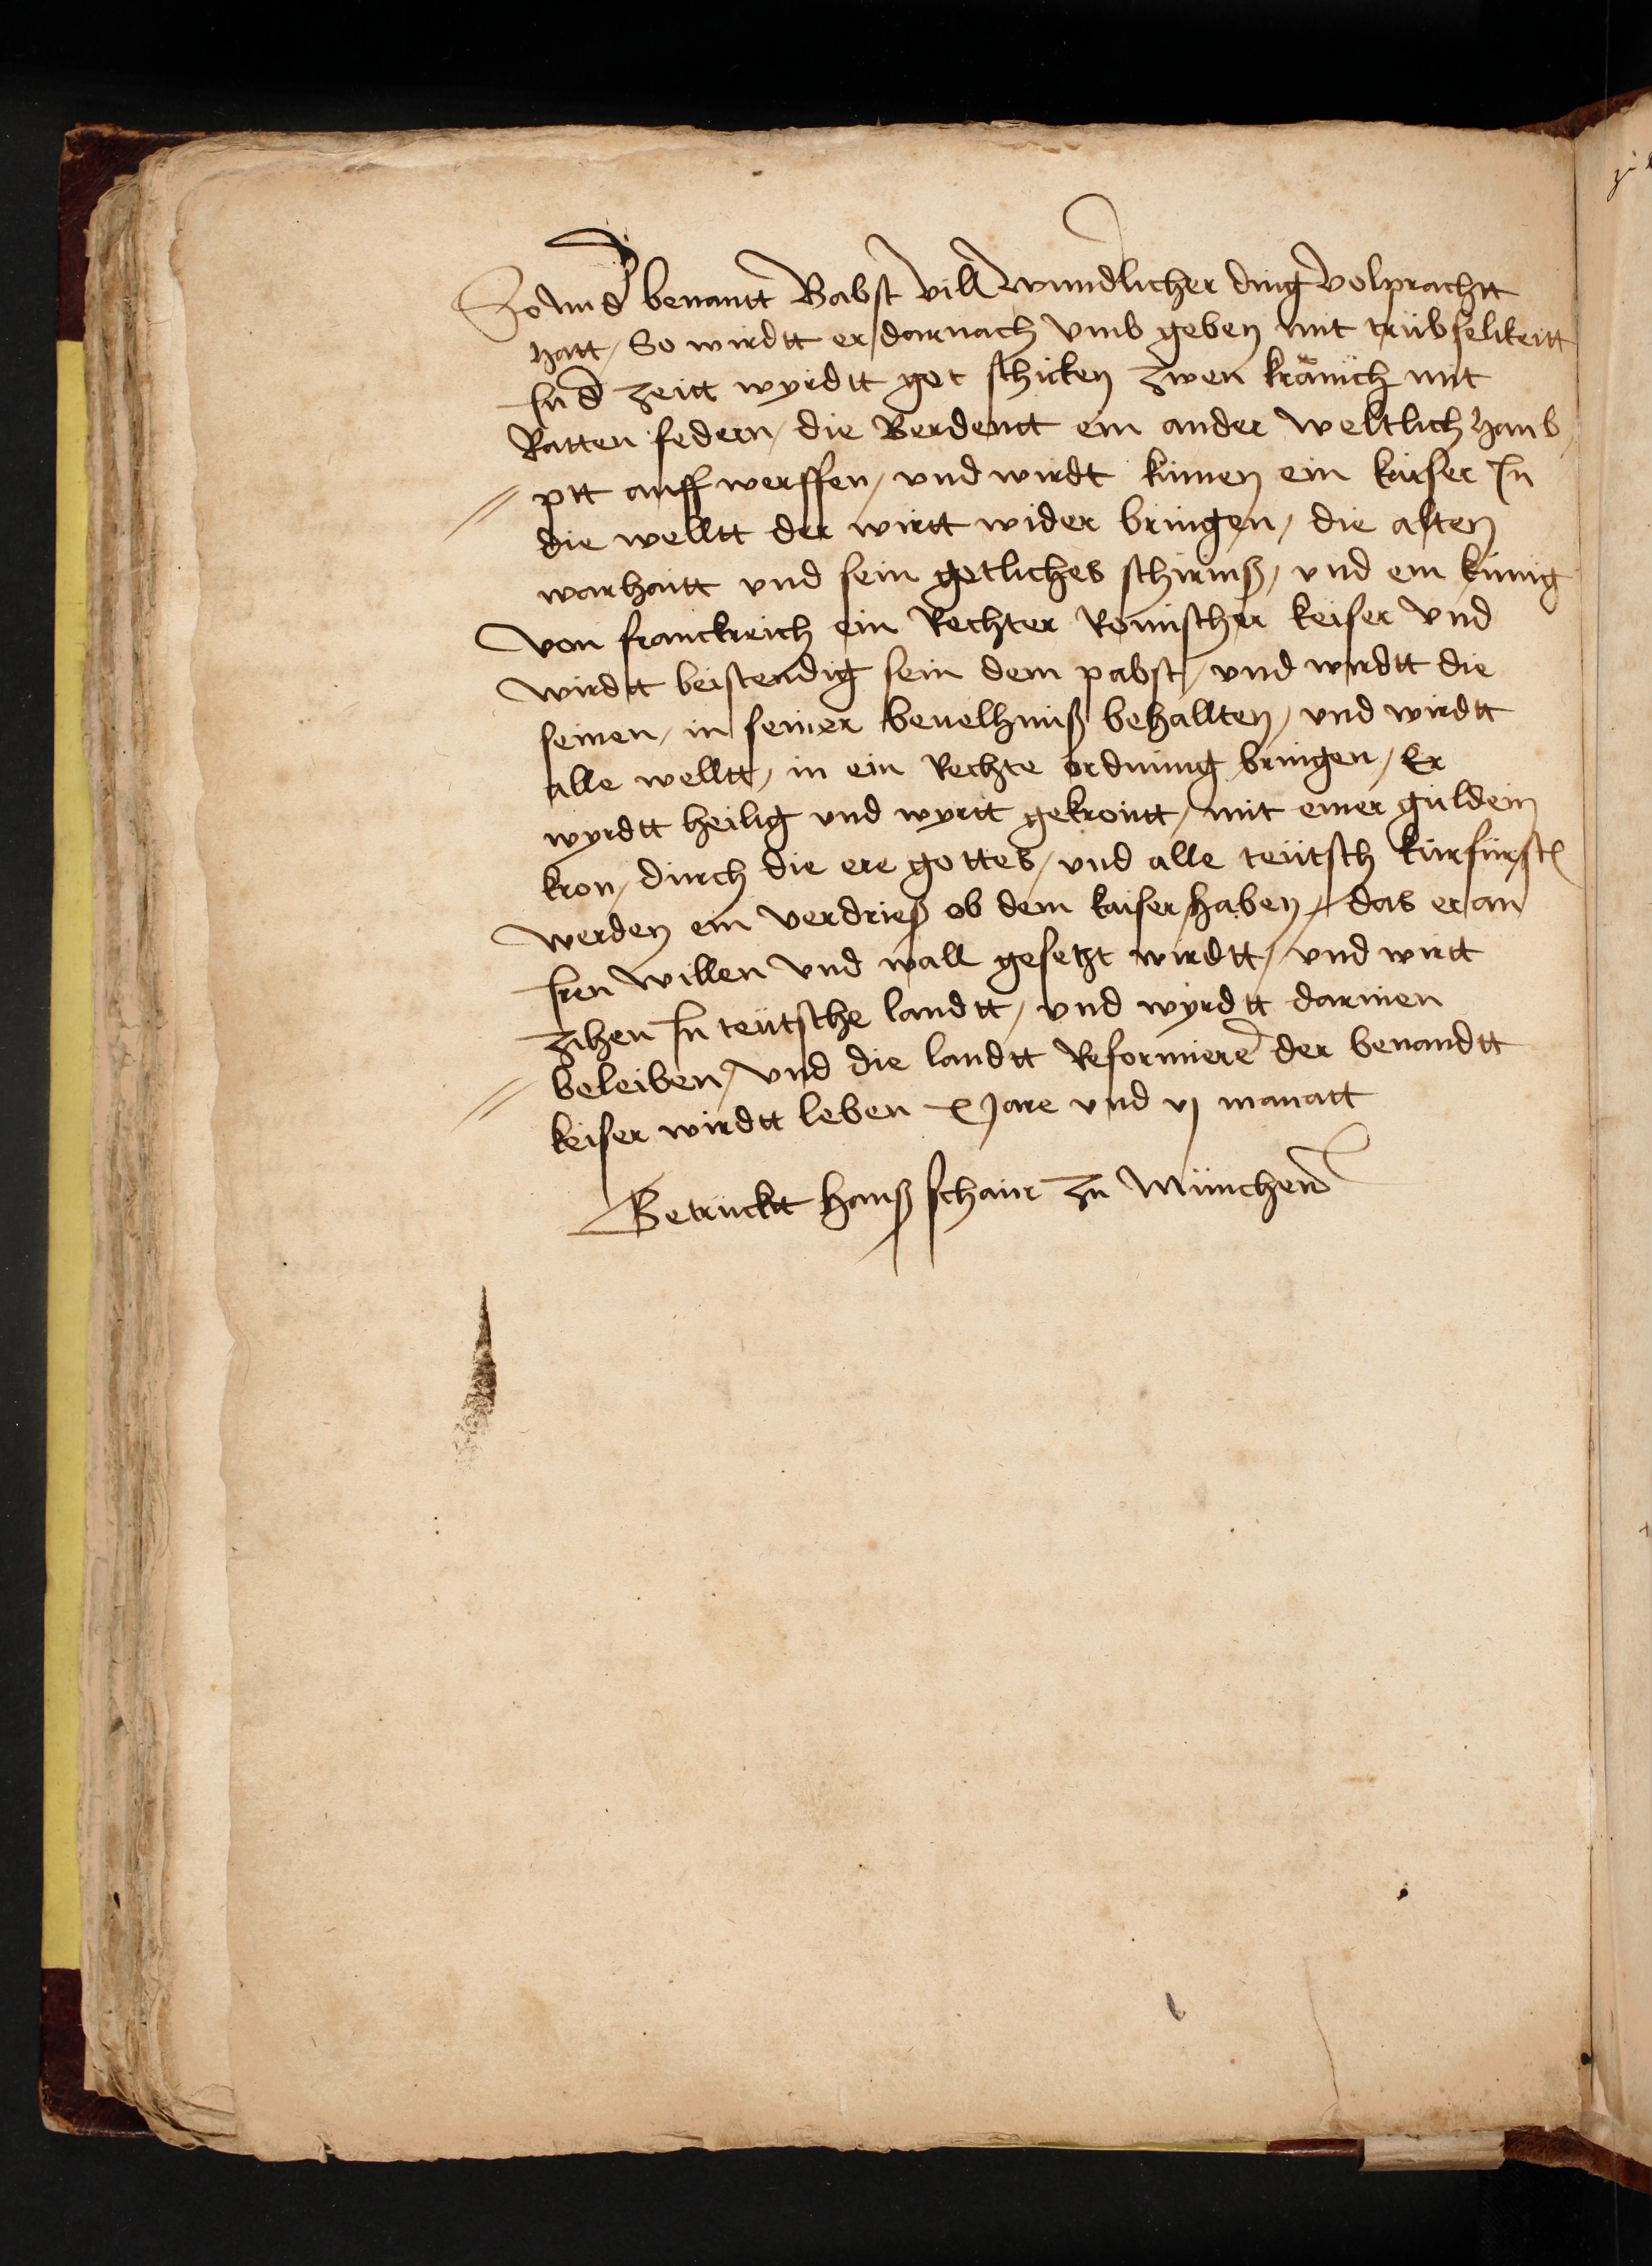 So nu d' benantt Babst vill wundlicher ding volprachtt
hatt / So wirdtt er darnach vmb geben mit trübselikeitt
In d' zeitt wyrdtt got schicken zwen kränich mit
Ratten federn / die werdentt ein ander weltlich haub
ptt auff werffen / vnd wirdt kumen ein kaiser In
die welltt der wirtt wider bringen / die alten
warhaitt vnd sein getliches schirmß / vnd ein künig
von franckreich ein Rechter Romischer keiser vnd
wirdtt beistendig sein dem pabst / vnd wirdtt die
seinen / in seiner beuelhniß behallten / vnd wirdtt
alle welltt / in ein Rechte ordnung bringen / Er
wyrdtt heilig vnd wyrtt gekrontt / mit einer guldein
kron / durch die ere gottes / vnd alle teütsch kurfürst
werden ein verdrieß ob dem kaiser haben / das er an
Iren willen vnd wall gesetzt wirdtt / vnd wirtt
zihen In teütsche landtt / vnd wyrdtt darinen
beleiben / vnd die landtt Reformiere der benandtt
keiser wirdtt leben x Jare vnd vj manatt
Getruckt hanß schaur zu München